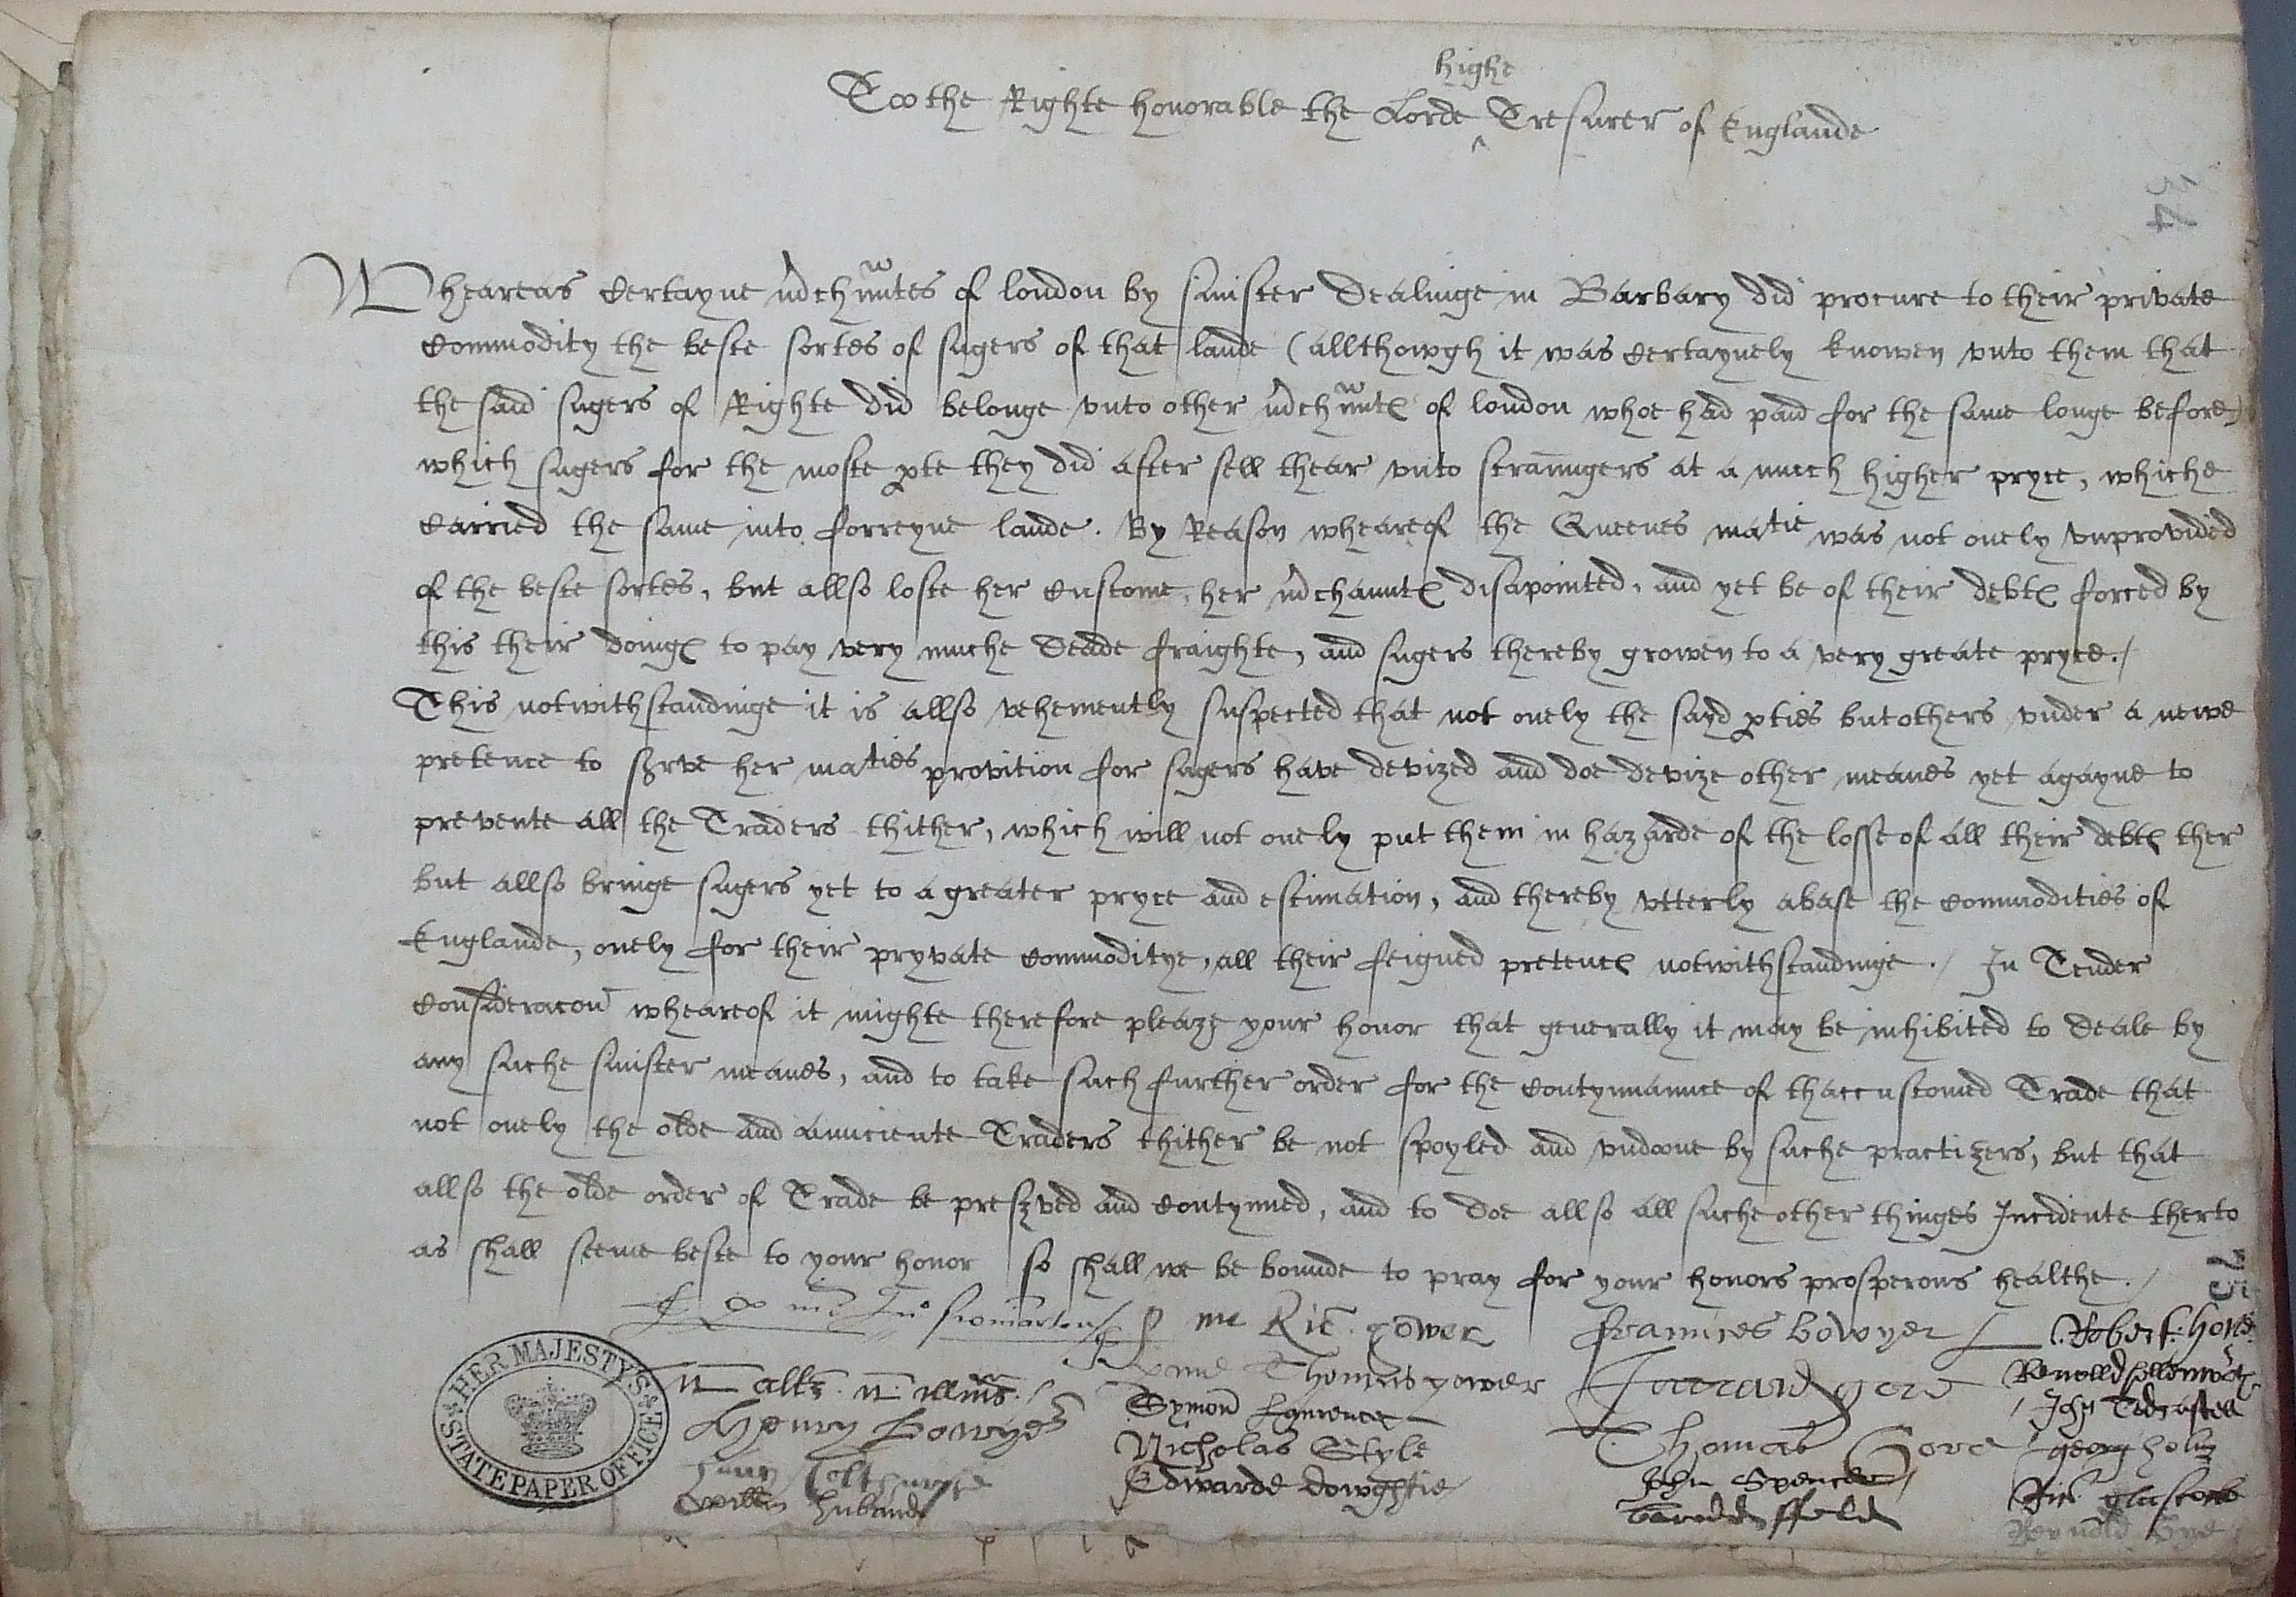 highe
Too the Righte honorable the Lorde ^ Tresurer of Englande
Wheareas certayne mchuntes of london by sinister dealinge in Barbary did procure to their private
commodity the beste sortes of sugers of that lande (allthowgh it was certaynely knowen vnto them that
the said sugers of Righte did belonge vnto other mchunt of london whoe had paid for the same longe before)
which sugers for the moste pte they did after sell thear vnto straungers at a much higher pryce, whiche
carried the same into forreyne lande. By Reason wheareof the Queenes matie was not onely vnprovided
of the beste sortes, but allso loste her custome, her mchaunt disapointed, and yet be of their debt forced by
this their doing to pay very muche deade fraighte, and sugers thereby growen to a very greate pryce./
This notwithstandinge it is allso vehemently suspected that not onely the sayd pties but others vnder a newe
pretence to serve her maties provition for sugers have devized and doe devize other meanes yet agayne to
prevente all the Traders thither, which will not onely put them in hazarde of the losse of all their debt ther
but allso bringe sugers yet to a greater pryce and estimation, and thereby vtterly abase the commodities of
Englande, onely for their pryvate commoditye, all their feigned pretenc notwithstandinge./ In Tender
consideracon wheareof it mighte therefore pleaze your honor that generally it may be inhibited to deale by
any suche sinister meanes, and to take such further order for the contynuaunce of thaccustomed Trade that
not onely the olde and aunciente Traders thither be not spoyled and vndoone by suche practizers, but that
allso the olde order of Trade be preserved and contynued, and to doe allso all suche other thinges Incidente therto
as shall seeme beste to your honor so shall we be bounde to pray for your honors prosperous healthe./
me Ric gower Fraunces bowyer Robert: howe
me Thomas gower Gerrard gore
Henry Bowyer Symond Laurence Thomas Gore
Nicholas Style John Spencer georg holm
Willm huband Edwarde dowghtie ffeld Ric glascocke
HER MAJESTY'S STATE PAPER OFFICE